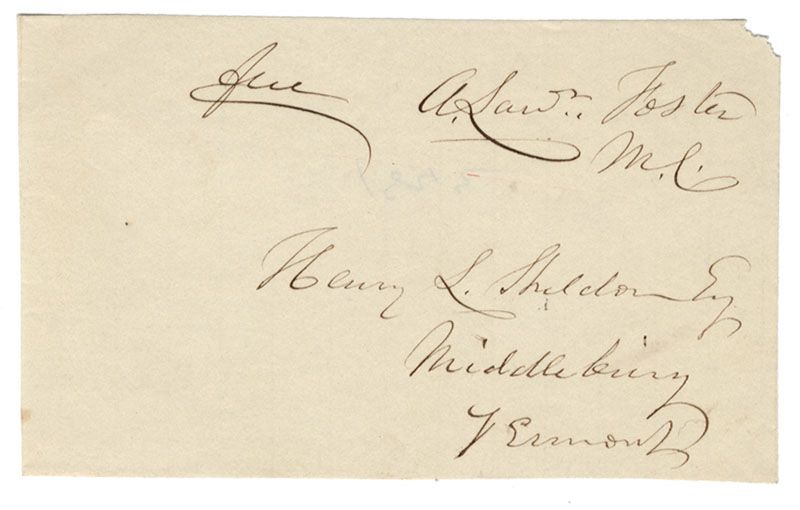 Free A. Lawr. Foster
M.C.
Henry L. Sheldon Esq
Middlebury
Vermont